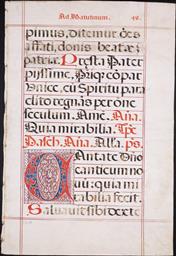 Ad Matutinum. 49.
pimus, ditemur oēs
affati, donis beatae
patriæ. Præsta Pater
pijssime, Patriq; cōpar
Vnice, cū Spiritu para
clito regnās per ōne
seculum. Amē. Aña.
Quia mirabilia. Tpe
Pasch. Aña. Alla. ps.
Cantate Dño
canticum no
uū: quia mi
rabilia fecit.
Saluauit sibi dexte